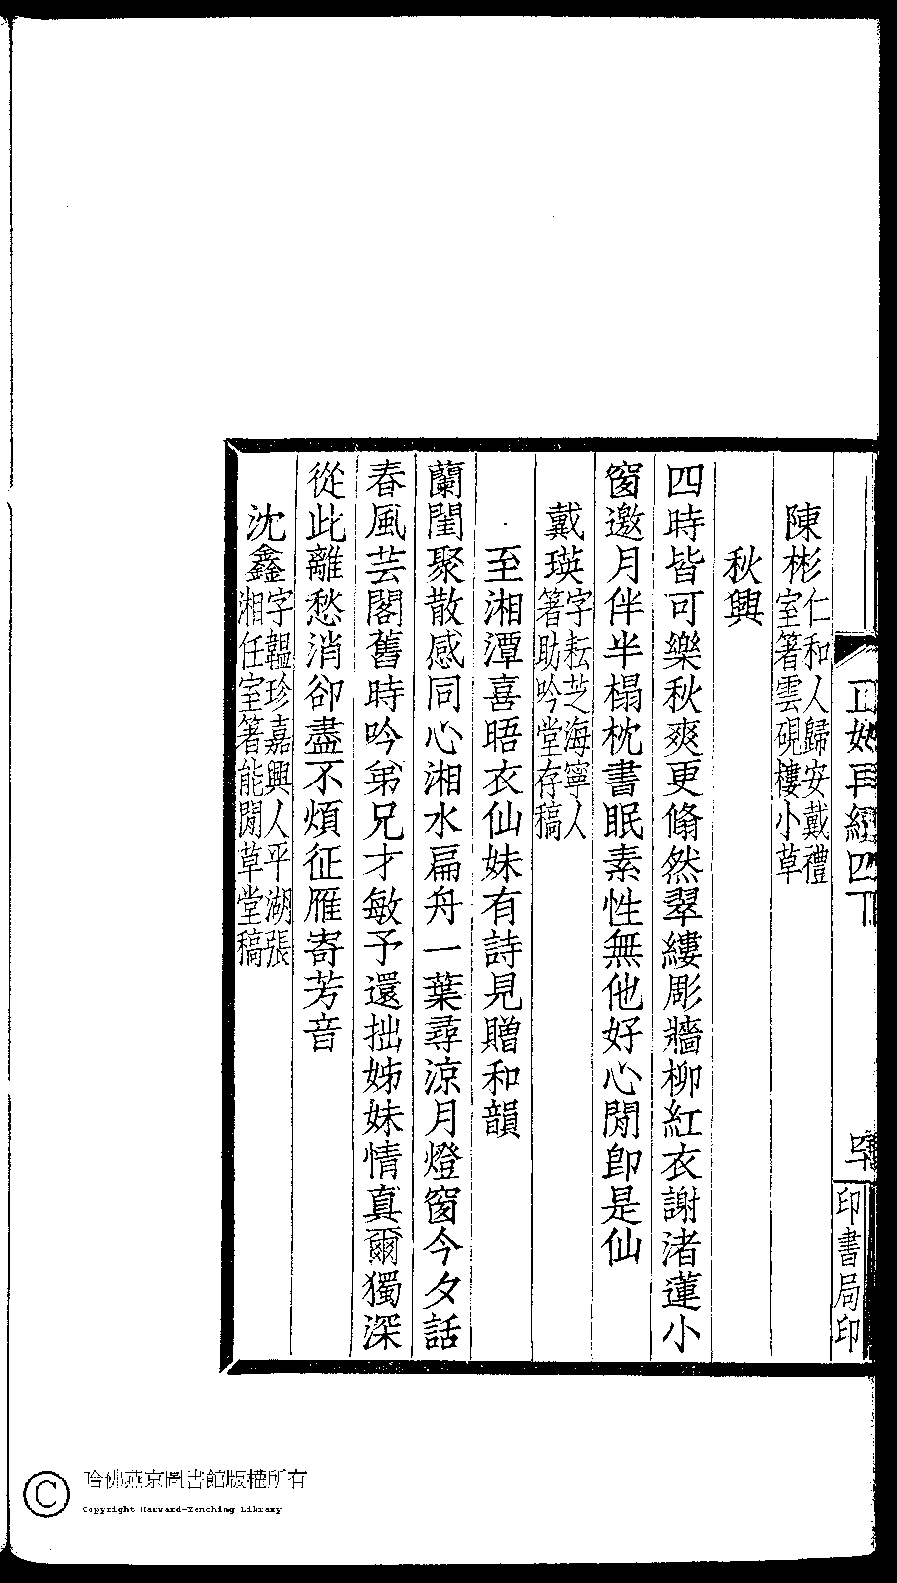 陳彬仁和人歸安戴禮室箸雲硯樓小草
秋興
四時皆可樂秋爽更翛然翠縷彫牆柳紅衣謝渚蓮小
窗邀月伴半榻枕書眠素性無他好心閒卽是仙
戴瑛字耘芝海寧人箸助吟堂存稿
至湘潭喜晤衣仙妹有詩見贈和韻
蘭閨聚散感同心湘水扁舟一葉尋涼月燈窗今夕話
春風芸閣舊時吟弟兄才敏予還拙姊妹情真爾獨深
從此離愁消卻盡不煩征雁寄芳音
沈鑫字韞珍嘉興人平湖張湘任室箸能閒草堂稿
正始再續四下
印書局印
哈佛燕京圖書館版權所有
Copyright Harvard-Yenching Library